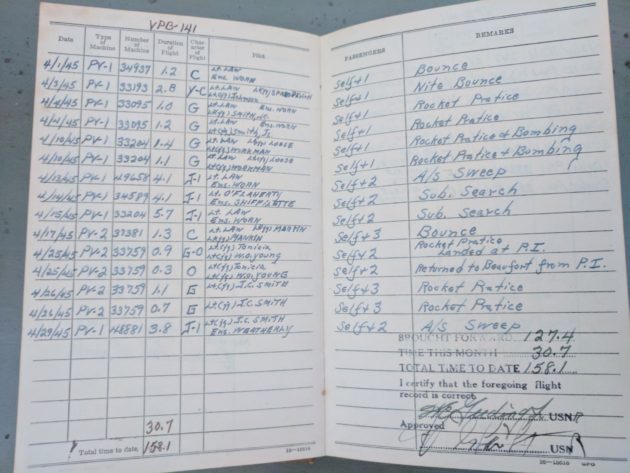 VPB-141
Date Type of Machine Number of Machine Duration of Flight Character of Flight Pilot PASSENGERS REMARKS
4/1/45 PV-1 34937 1.2 C Lt. LAW Self+1 Bounce
Ens. WORN
4/3/45 PV-1 33193 2.8 Y-C Lt. LAW Self+1 Nite Bounce
Lt(jg) Johnson
4/4/45 PV-1 33095 1.0 G Lt. LAW Ens. WORN Self+1 Rocket Pratice
Lt(jg) SMITH, JC.
4/4/45 PV-1 33095 1.2 G Lt. LAW Ens. WORN Self+1 Rocket Pratice
Lt(jg) Smith, J.
4/10/45 PV-1 33204 1.4 G Lt. LAW Lt(jg) LOOSE Self+1 Rocket Pratice & Bombing
Lt(jg) WORKMAN
4/10/45 PV-1 33204 1.1 G Lt. LAW Lt(jg) LOOSE Self+1 Rocket Pratice & Bombing
Lt(jg) WORKMAN
4/13/45 PV-1 49658 4.1 J-1 Lt. LAW Self+2 A/S SWEEP
Ens. WORN
4/14/45 PV-1 34589 4.1 J-1 Lt. O'FLAHERTY Self+2 Sub. Search
Ens. SHIFFLETTE
4/15/45 PV-1 33204 5.7 J-1 Lt. LAW Self+2 Sub. Search
Ens. WORN
4/17/45 PV-2 37381 1.3 C Lt. LAW Lt(jg) MARTIN Self+3 Bounce
Lt(jg) MAUKIN
4/25/45 PV-2 33759 0.9 G-O Lt(jg) Tonicia Self+2 Rocket Pratice
Lt(jg) W.D. young Landed at P.I.
4/25/45 PV-2 33759 0.3 O Lt(jg) Tonicia Self+2 Returned to Beaufort from P.I.
Lt(jg) W.D. YOUNG
4/26/45 PV-2 33759 1.1 G Lt(jg) J.C. SMITH Self+3 Rocket Pratice
4/26/45 PV-2 33759 0.7 G Lt(jg) J.C. SMITH Self+3 Rocket Pratice
4/29/45 PV-1 48881 3.8 J-1 Lt(jg) J.C. SMITH Self+2 A/S Sweep
Ens. WEATHERLY
BROUGHT FORWARD 127.4
TIME THIS MONTH 30.7
TOTAL TIME TO DATE 158.1
I certify that the foregoing flight
record is correct.
USNR
Approved
30.7
Total time to date, 158.1
USN
16—12616
16—12616 GPO